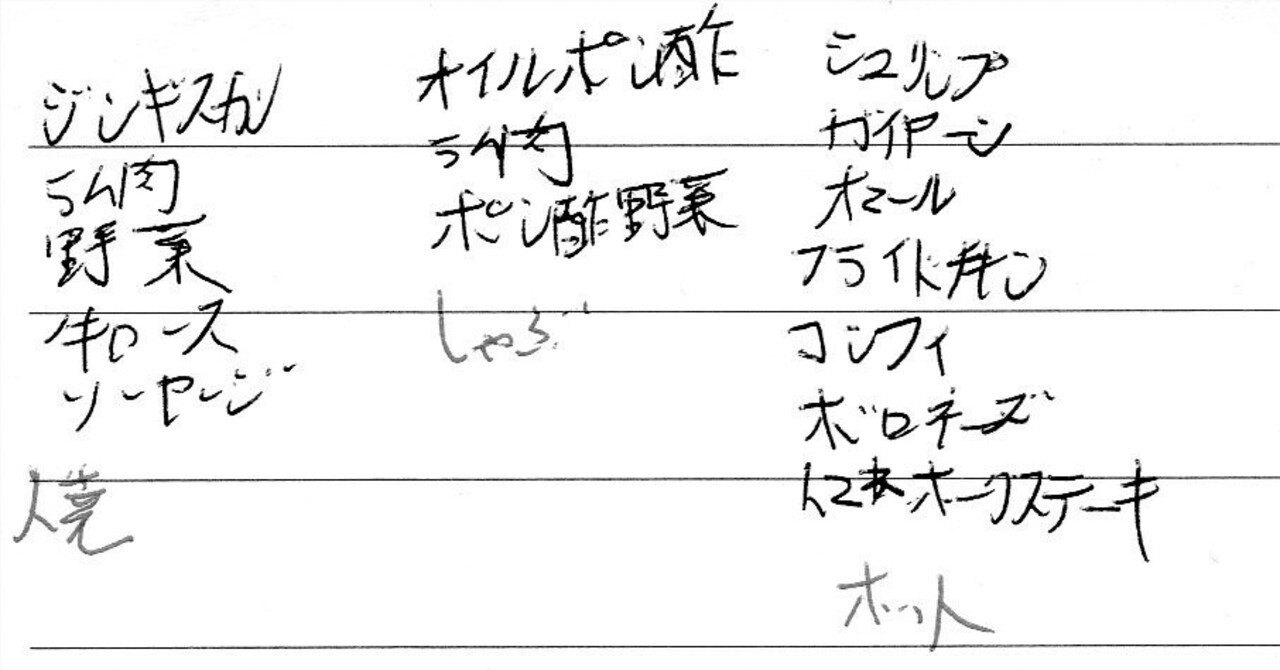 ジンギスカン
ラム肉
野菜
牛ロース
ソーセージ
焼
オイルポン酢
ラム肉
ポン酢野菜
しゃぶ
シュリンプ
ガイヤーン
オマール
フライドチキン
コンフィ
ボロネーズ
トマホークステーキ
ホット